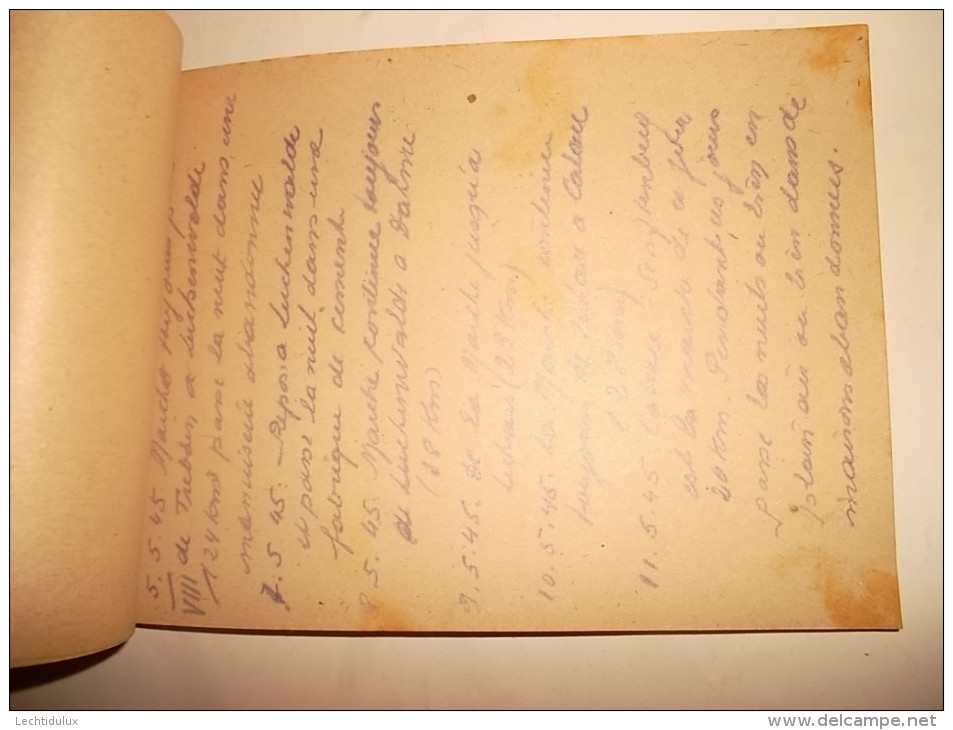 5.5.45 Marche toujours
VIII de Trebbin a Luckenwalde
(24 km) passe la nuit dans une
menuiserie abandonné
7.5.45. Repos a Luckenwalde
et passe la nuit dans une
fabrique de ciments
8.5.45. Marche continue toujours
de Luckenwalde a Dahme
(38 km)
9.5.45. de la Marche jusqu'a
Luckau (28 km.)
10.5.45. La Marche continue
toujours de Luckau a Calau
(28 km)
11.5.45 Calau Senftenberg
est la marche de ce jour
20 km. Pendant ces jours
passe les nuits ou bien en
plein air ou bien dans de
maisons abandonnées.
Lechtidulux
www.delcampe.net